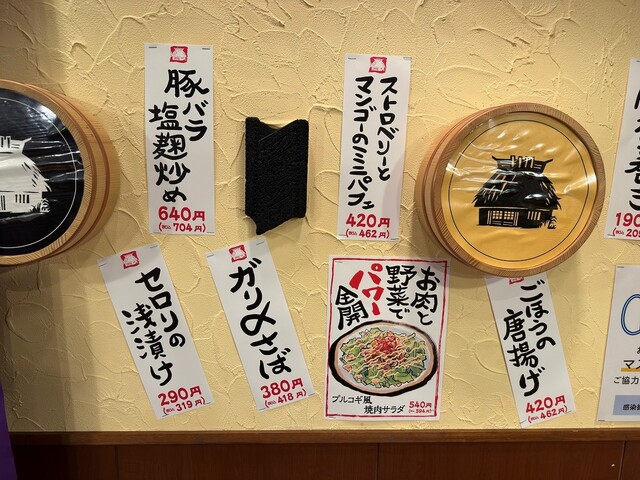 豚バラ
塩麹炒め
640円
(税込 704円)
ストロベリーと
マンゴーのミニパフェ
420円
(税込 462円)
190
セロリの
浅漬け
290円
(税込 319円)
ガリ〆さば
380円
(税込 418円)
お肉と
野菜で
パワー
全開
プルコギ風
焼肉サラダ
540円
(税込 594円)
ごぼうの
唐揚げ
420円
(税込 462円)
マス
ご協力
感染